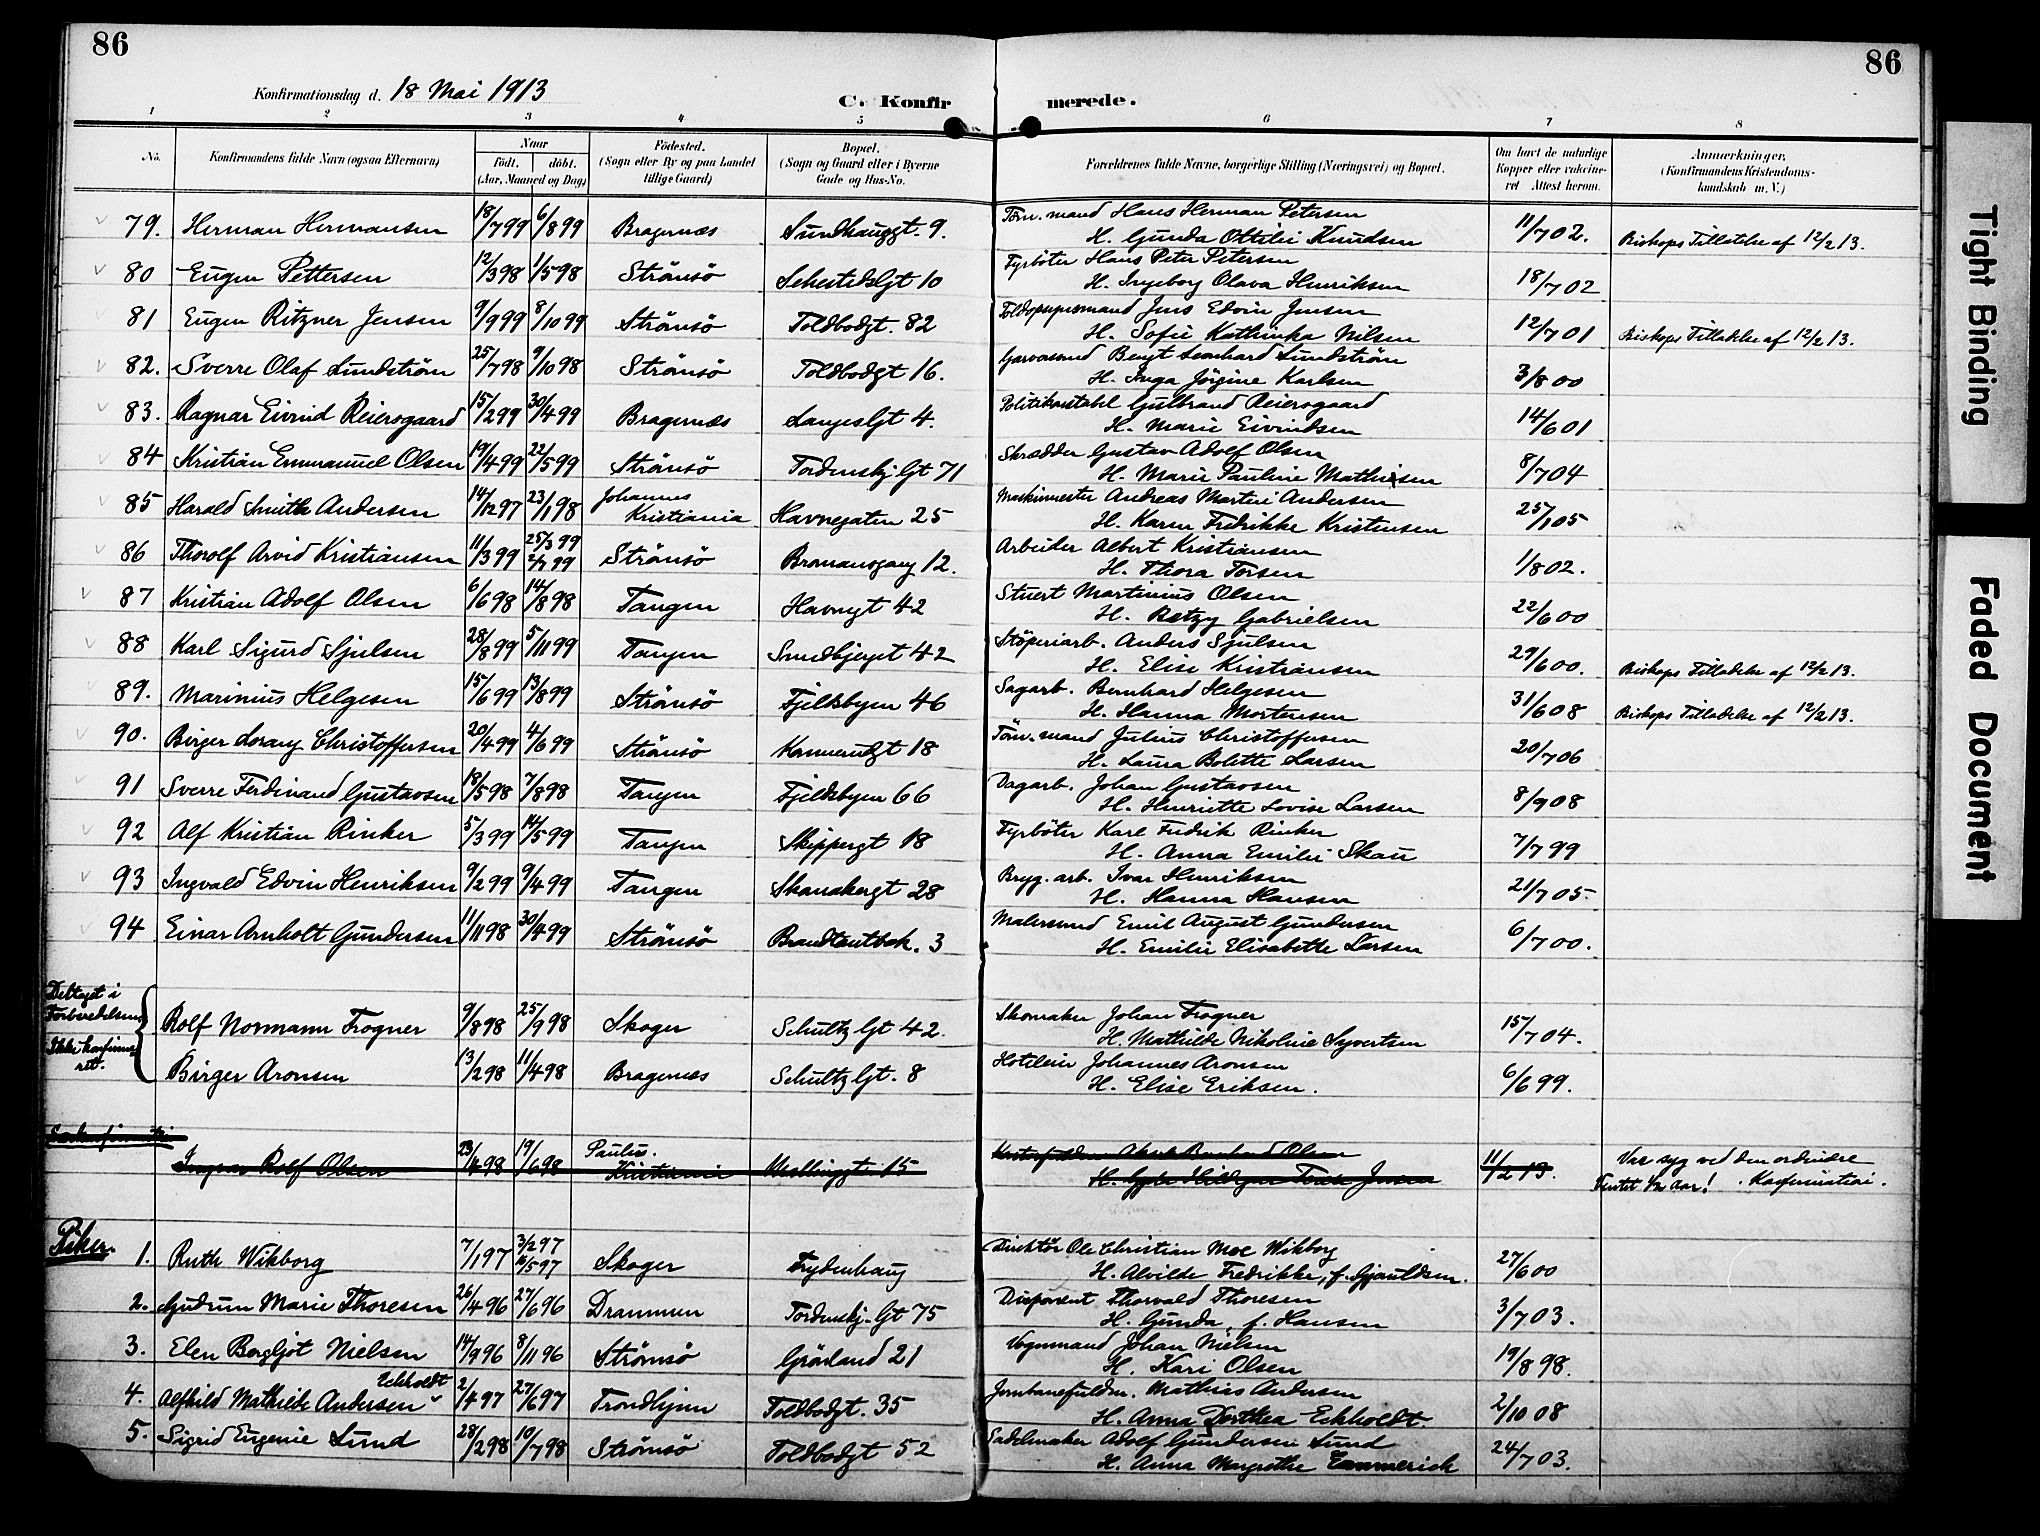 86
86
Konfirmationsdag d. 18 Mai 1913
C. Konfirmerede.
1 2 3 4 5 6 7 8
No. Konfirmandens fulde Navn (ogsaa Efternavn) Naar født. døbt. (Aar, Maaned og Dag) Fødested. (Sogn eller By og paa Landet tillige Gaard) Bopæl. (Sogn og Gaard eller i Byerne Gade og Hus-No. Forældrenes fulde Navne, borgerlige Stilling (Næringsvei) og Bopæl. Om havt de naturlige Kopper eller vakcineret Attest herom. Anmærkninger, (Konfirmandens Kristendomskundskab m. V.)
79. Herman Hermansen 18/7 99 6/8 99 Bragernæs Sundhauggt. 9. Törn. mand Hans Herman Petersen
H. Gunda Ottilie Knudsen 11/7 02. Biskops Tilladelse af 12/2 13.
80 Eugen Pettersen 12/3 98 1/5 98 Strömsö Sehestedsgt 10 Fyrböter Hans Peter Petersen
H. Ingeborg Olava Henriksen 18/7 02
81 Eugen Ritzner Jensen 9/9 99 8/10 99 Strömsö Toldbodgt. 82 Jens Edvin Jensen
H. Sofie Kathinka Nilsen 12/7 01 Biskops Tilladelse af 12/2 13.
82. Sverre Olaf Lundström 25/7 98 9/10 98 Strömsö Toldbodgt 16. Garversvend Bengt Leonhard Lundström
H. Inga Jörgine Karlsen 3/8 00
83. Ragnar Eivind Reiersgaard 15/2 99 30/4 99 Bragernæs Langesgt 4. Politikonstabel Gulbrand Reiersgaard
H. Marie Eivindsen 14/6 01
84 Kristian Emmanuel Olsen 19/4 99 22/5 99 Strömsö Tordenskj. Gt 71 Skrædder Gustav Adolf Olsen
H. Marie Pauline Mathisen 8/7 04
85 Harald Smith Andersen 14/12 97 23/1 98 Johannes Kristiania Havnegaten 25 Maskinmester Andreas Martin Andersen
H. Karen Fredrikke Kristensen 25/1 05
86 Thorolf Arvid Kristiansen 11/3 99 25/3 99 2/7 99 Strömsö Bromansgang 12. Arbeider Albert Kristiansen
H. Thora Torsen 1/8 02.
87 Kristian Adolf Olsen 6/6 98 14/8 98 Tangen Havnegt 42 Stuert Martinius Olsen
H. Betzy Gabrielsen 22/6 00
88 Karl Sigurd Sjulsen 28/8 99 5/11 99 Tangen Smedbjerget 42 Stöperiarb. Anders Sjulsen
H. Elise Kristiansen 29/6 00. Biskops Tilladelse af 12/2 13.
89. Marinius Helgesen 15/6 99 13/8 99 Strömsö Fjeldbyen 46 Sagarb. Bernhard Helgesen
H. Hanna Mortensen 31/6 08 Biskops Tilladelse af 12/2 13.
90. Birger Christoffersen 20/4 99 4/6 99 Strömsö Konnerudgt 18 Törn. mand Julius Christoffersen
H. Laura Bolette Larsen 20/7 06
91 Sverre Ferdinand Gustavsen 18/5 98 7/8 98 Tangen Fjeldbyen 66 Dagarb. Johan Gustavsen
H. Henriette Lovise Larsen 8/9 08
92 Alf Kristian Rinker 5/3 99 14/5 99 Tangen Skippergt 18 Fyrböter Karl Fredrik Rinker
H. Anna Emilie Skau 7/7 99
93 Ingvald Edvin Henriksen 9/2 99 9/4 99 Tangen Skanskergt 28 Bryg. arb. Ivar Henriksen
H. Hanna Hansen 21/7 05.
94 Einar Arnholt Gundersen 11/11 98 30/4 99 Strömsö 3 Malersvend Emil August Gundersen
H. Emilie Elisabethe Larsen 6/7 00.
Deltaget i Forberedelsen. Ikke konfirmeret.
Rolf Normann Frogner 9/8 98 25/9 98 Skoger Schultz Gt 42. Skomaker Johan Frogner
H. Mathilde Nikoline Syvertsen 15/7 04.
Birger Aronsen 13/2 98 11/4 98 Bragernæs Schultz Gt. 8 Hoteleier Johannes Aronsen
H. Elise Eriksen. 6/6 99.
Rolf Olsen 23/4 98 19/6 98 Paulus. Kristiania 15 Olsen
H. 11/2 13. Var syg ved den ordinære
Ventet 1/2 aar! Konfirmation.
Piker.
1. Ruth Wikborg 7/1 97 3/2 97 Skoger Frydenhaug Direktör Ole Christian Moe Wikborg
H. Alvilde Fredrikke, f. 27/6 00
2. Gudrun Marie Thoresen 26/4 96 27/6 96 Drammen Tordenskj. Gt 75 Disponent Thorvald Thoresen
H. Gunda, f. Hansen 3/7 03.
3. Elen Bergljöt Nielsen 14/9 96 8/11 96 Strömsö Grönland 21 Vognmand Johan Nielsen
H. Kari Olsen 19/8 98.
4. Alfhild Mathilde Andersen Eckholdt 2/4 97 27/6 97 Trondhjem Toldbodgt. 35 Jernbanefuldm. Mathias Andersen
H. Anna Dorthea Eckholdt. 2/10 08
5. Sigrid Eugenie Lund 28/2 98 10/7 98 Strömsö Toldbodgt 52 Sadelmaker Adolf Gundersen Lund
H. Anna Margrethe Emmerick 24/7 03.
Tight Binding
Faded Document